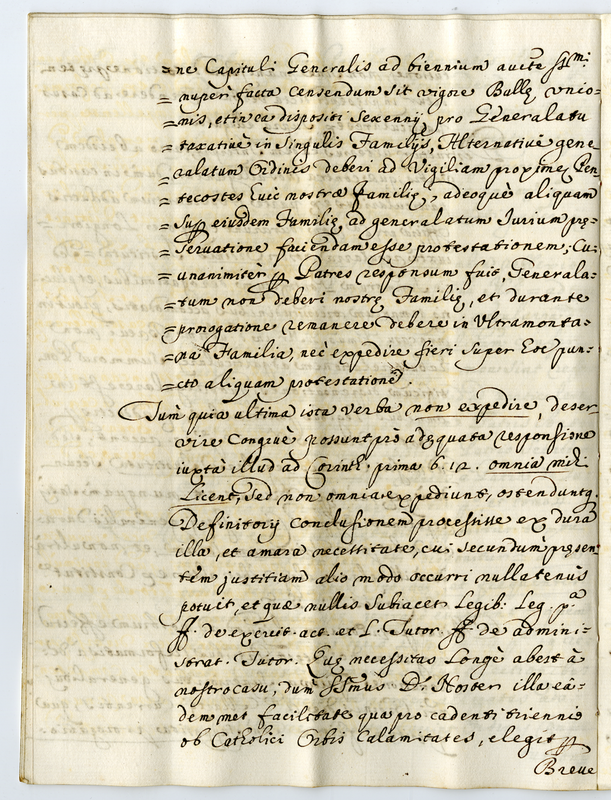 =ne Capituli Generalis ad biennium aucte SS.mi
= nuper facta censendum sit vigore Bullę Vnio=
=nis, et in ea dispositi Sexennij pro Generalatu
= taxative in singulis Familijs, Alternativè gene=
=ralatum Ordinis deberi ad Vigiliam proximę Pen=
=tecostes huic nostræ Familię, adeoquè aliquam
= Sup ejusdem Familię ad generalatum Jurium prę=
= servatione faciendam esse protestationem; Cui
= unanimitèr p Patres responsum fuit, Generala=
= tum non deberi nostrę Familię, et durante
= prorogatione remanere debere in Vltramonta=
= na Familia, nec expedire fieri super hoc pun=
=cto aliquam protestationẽ.
Tum quia ultima ista verba non expedire, deser=
vire Congruè possunt prò adęquata responsione
iuxta illud ad Corinth. prima 6. 12. omnia mihi
Licent, sed non omnia expediunt, ostenduntq.
Definitorij conclusionem processisse ex dura
illa, et amara necessitate, cui secundùm pręsen=
tèm justitiam alio modo occurri nullatenùs
potuit, et quæ nullis subiacet Legib. Leg. p.a
ff. de excuit. act. et L. Tutor. ff. de admini=
strat. Tutor. Quę necessitas Longè abest à
nostro casu; dum SSmus D. Noster illa eâ=
dem met facilitate qua pro cadenti triennio
ob Catholici Orbis Calamitates, elegit p
Breve